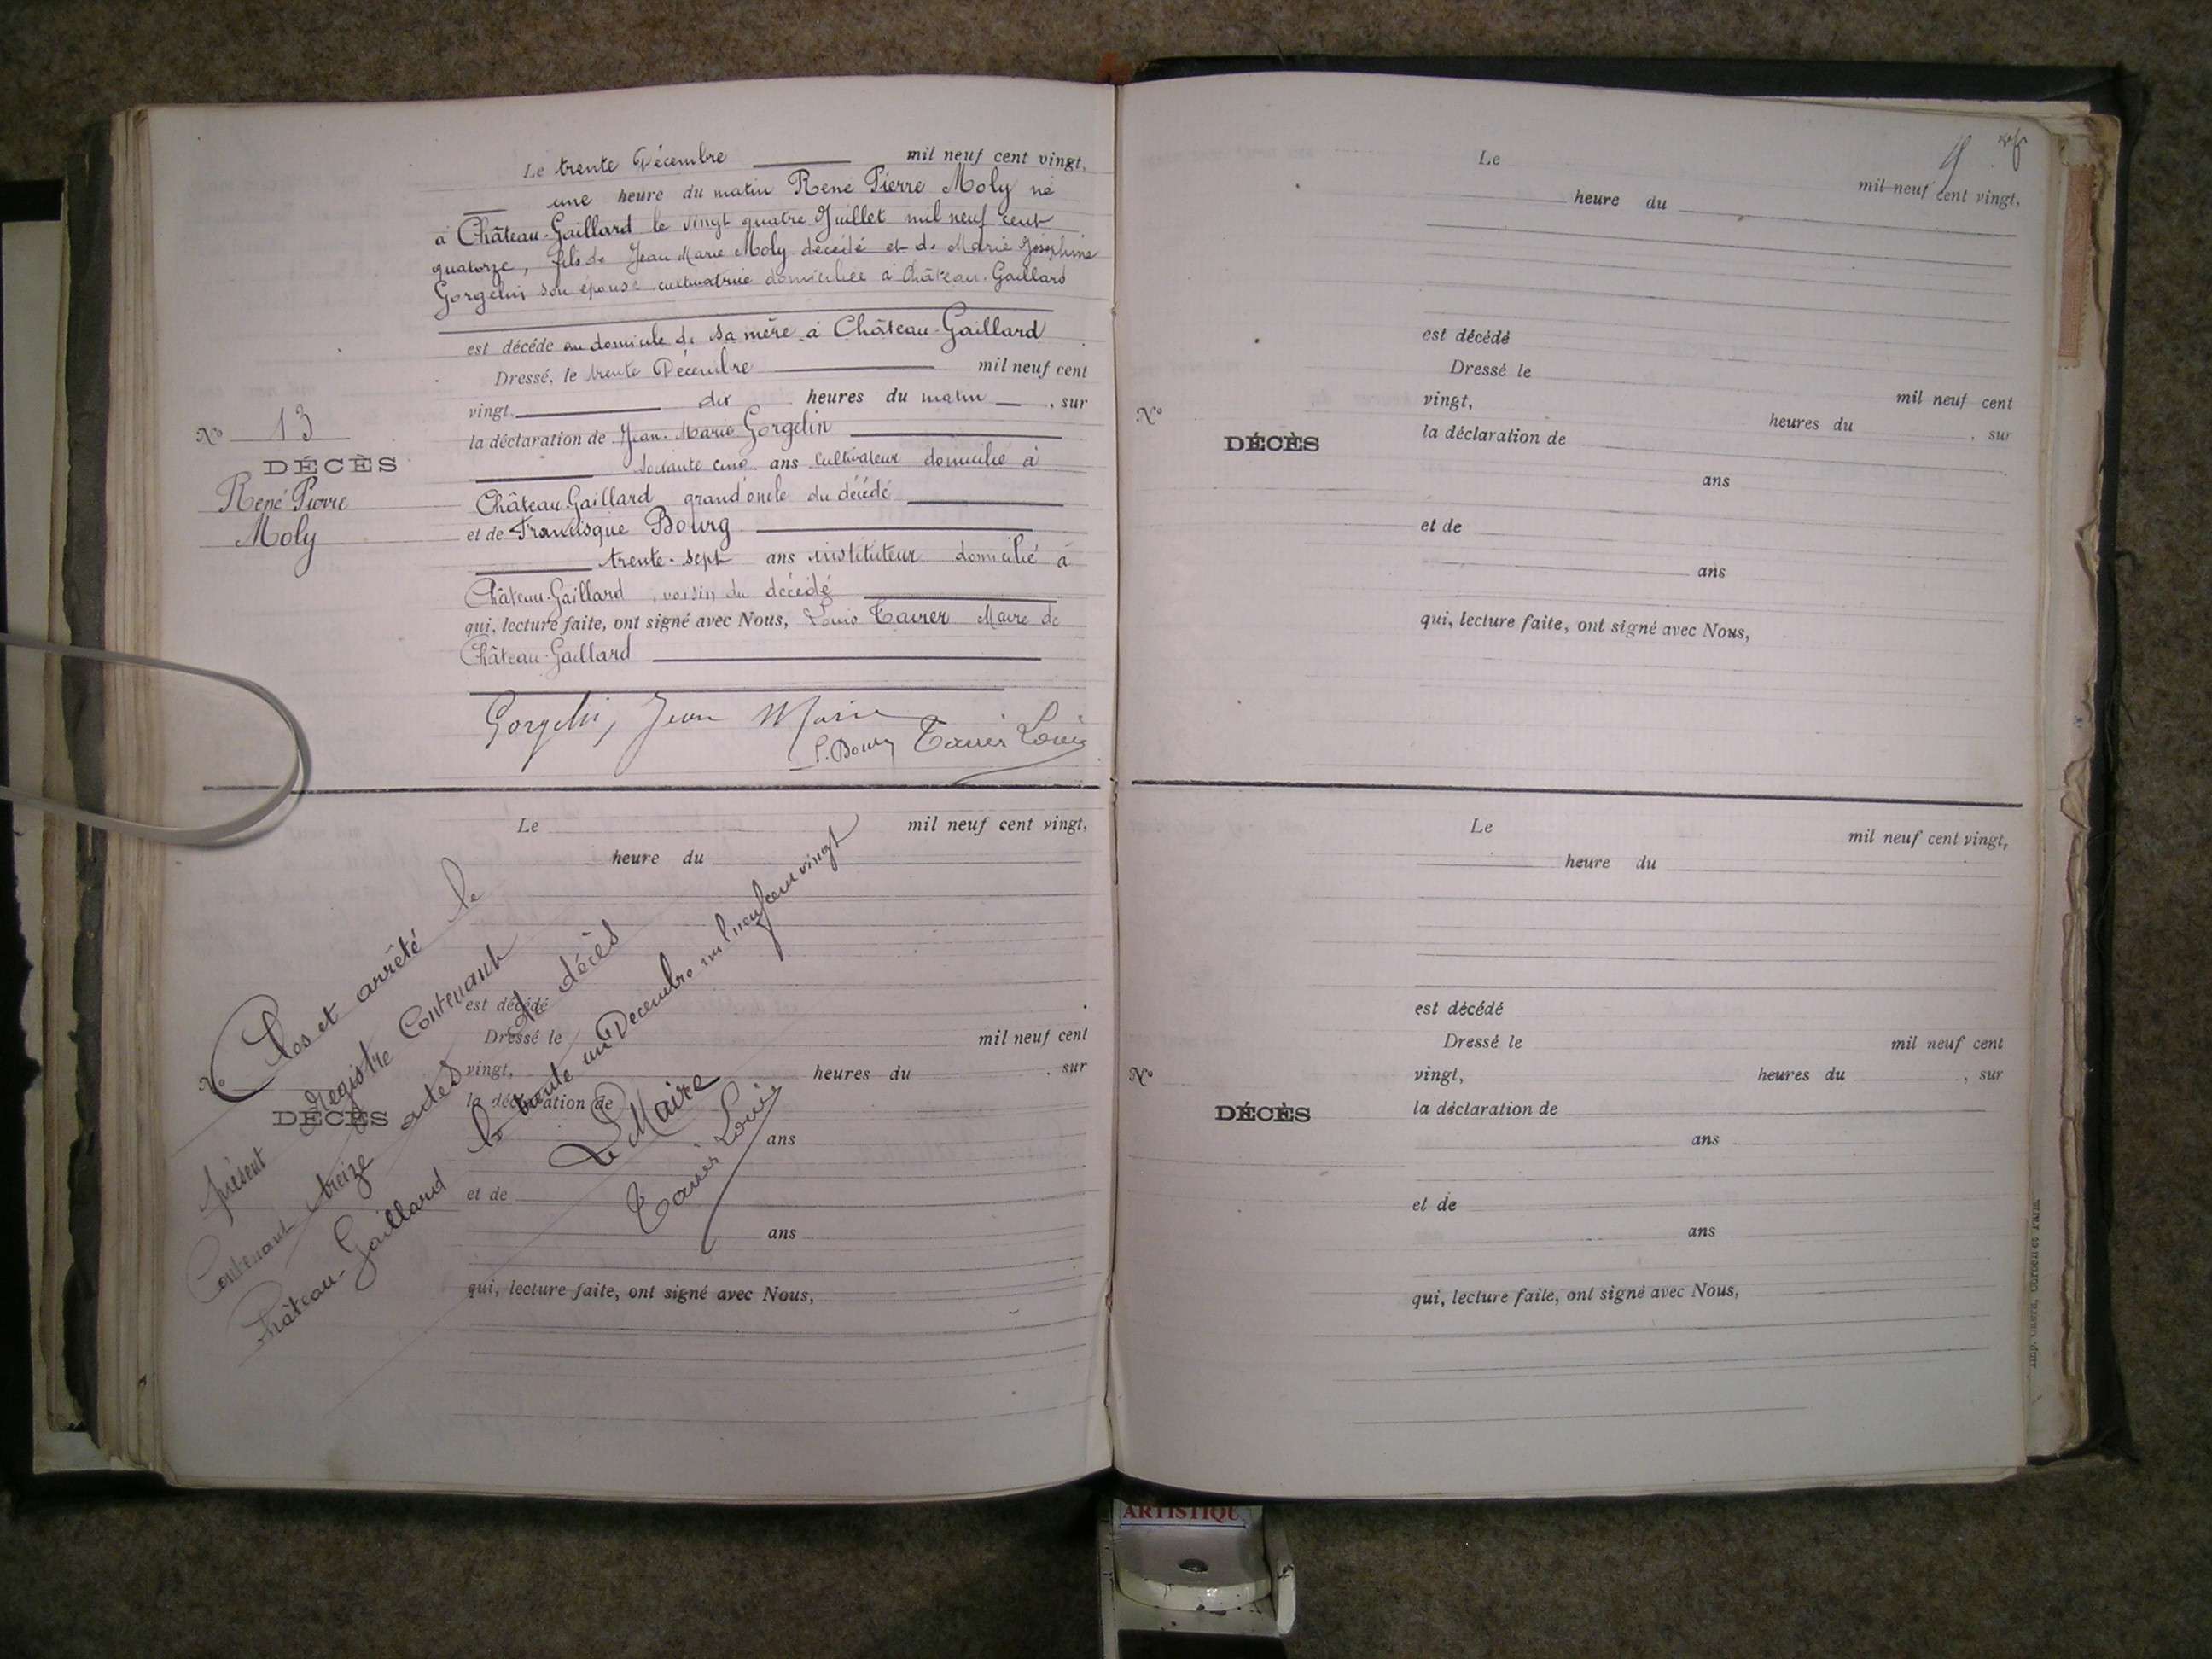 Le trente Décembre mil neuf cent vingt,
une heure du matin René Pierre Moly né
à Château-Gaillard le vingt quatre Juillet mil neuf cent
quatorze, fils de Jean Marie Moly décédé et de Marie Joséphine
Gorgelin son épouse cultivatrice domiciliée à Château-Gaillard
est décédé au domicile de sa mère à Château-Gaillard
Dressé, le trente Décembre mil neuf cent
vingt, dix heures du matin, sur
la déclaration de Jean-Marie Gorgelin
soixante cinq ans cultivateur domicilié à
Château-Gaillard grand'oncle du décédé
et de Francisque Bourg
trente-sept ans instituteur domicilié à
Château-Gaillard, voisin du décédé
qui, lecture faite, ont signé avec Nous, Louis Tavier Maire de
Château-Gaillard
Gorgelin, Jean Marie
F. Bourg Tavier Louis
No 13
DÉCÈS
René Pierre
Moly
Le mil neuf cent vingt,
heure du
est décédé
Dressé le mil neuf cent
vingt, heures du , sur
la déclaration de
ans
et de
ans
qui, lecture faite, ont signé avec Nous,
No
DÉCÈS
Clos et arrêté le
présent registre Contenant
Contenant treize actes de décès
Château-Gaillard le trente un Décembre mil neuf cent vingt
Le Maire
Tavier Louis
9
Le mil neuf cent vingt,
heure du
est décédé
Dressé le mil neuf cent
vingt, heures du , sur
la déclaration de
ans
et de
ans
qui, lecture faite, ont signé avec Nous,
No
DÉCÈS
Le mil neuf cent vingt,
heure du
est décédé
Dressé le mil neuf cent
vingt, heures du , sur
la déclaration de
ans
et de
ans
qui, lecture faite, ont signé avec Nous,
No
DÉCÈS
ARTISTIQU